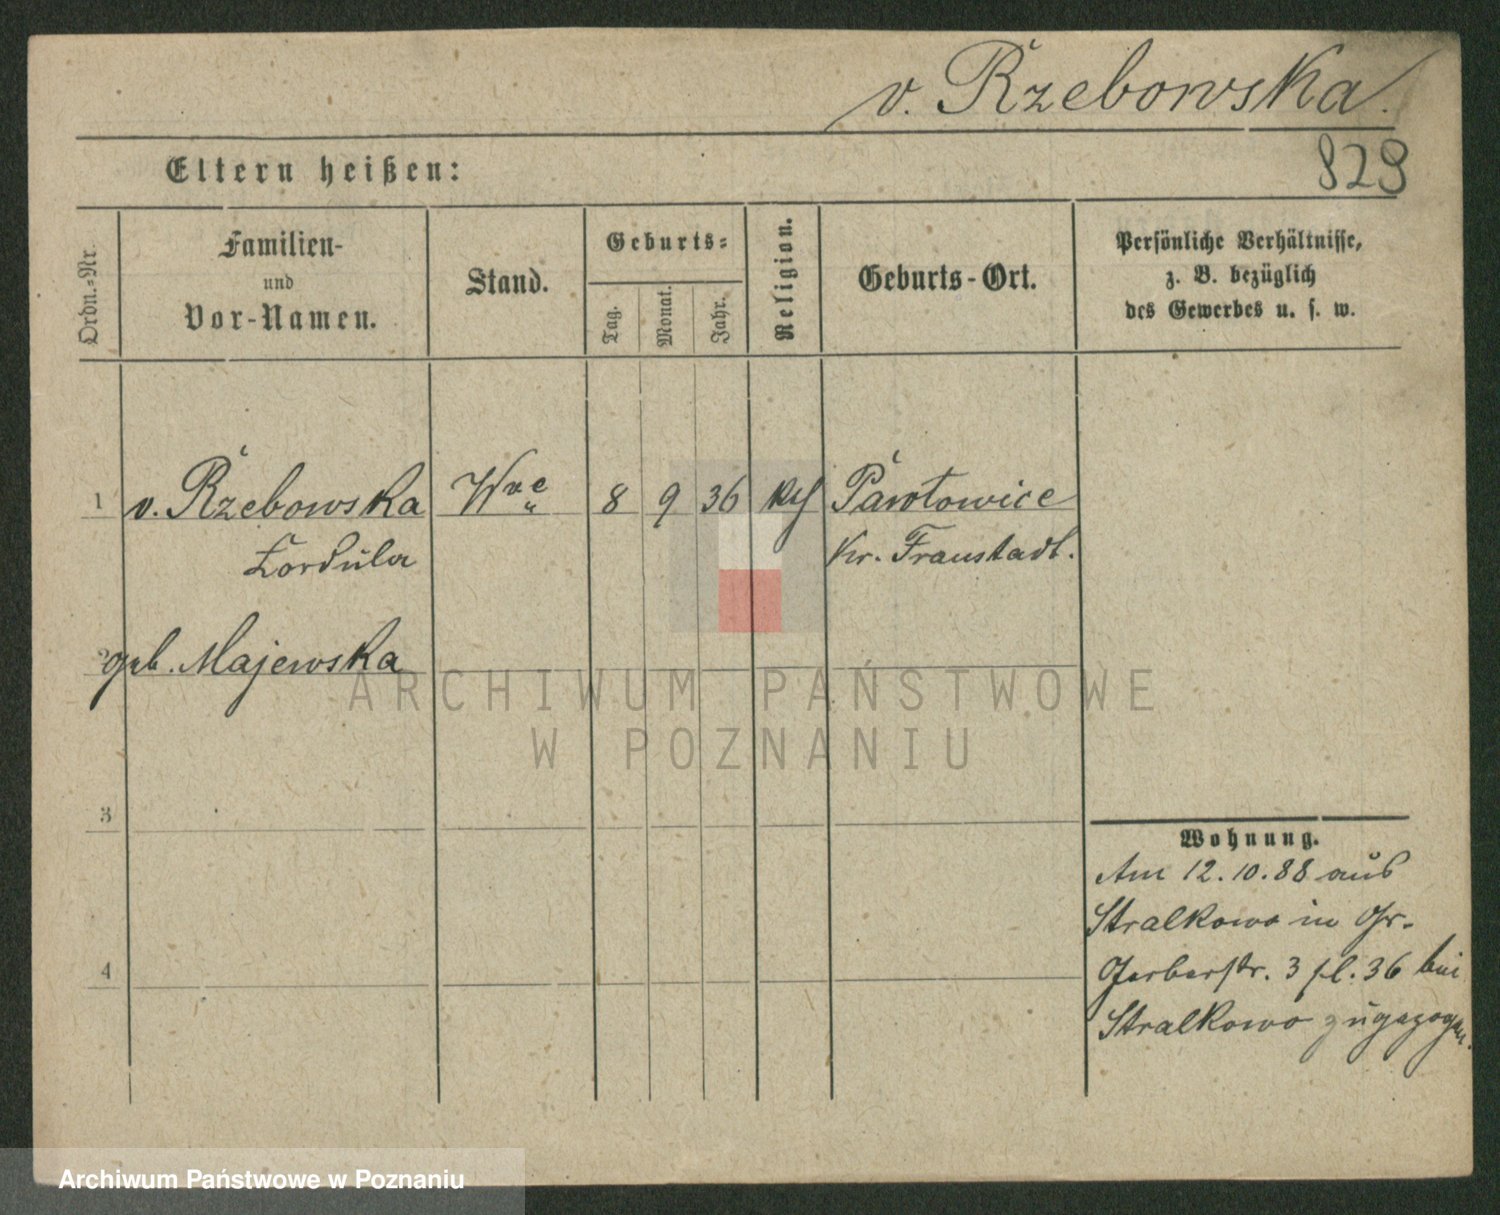 v. Rzebowska.
829
Eltern heißen:
Ordn.-Nr.
Familien-
und
Vor-Namen.
Stand.
Geburts-
Tag.
Monat.
Jahr.
Religion.
Geburts-Ort.
Persönliche Verhältnisse,
z. B. bezüglich
des Gewerbes u. s. w.
1 v. Rzebowska Wwe 8 9 36 kth Pawlowice
Kordula Kr. Fraustadt.
2 geb. Majewska
ARCHIWUM PAŃSTWOWE
W POZNANIU
3
Wohnung.
Am 12.10.88 aus
Stralkowo in Gr.
4
Gerberstr. 3 pl. 36 bei
Stralkowo zugezogen.
Archiwum Państwowe w Poznaniu